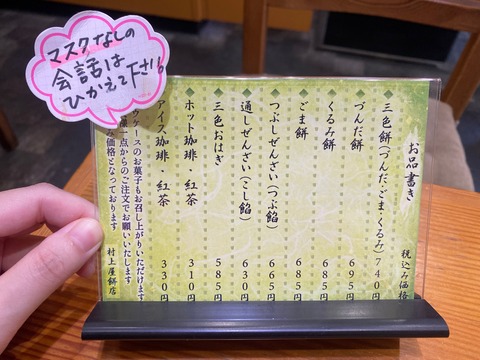 マスクなしの
会話は
ひかえて下さい。
お品書き
税込み価格
三色餅(づんだ・ごま・くるみ) 740円
づんだ餅 695円
くるみ餅 685円
ごま餅 685円
つぶしぜんざい(つぶ餡) 665円
通しぜんざい(こし餡) 630円
三色おはぎ 585円
ホット珈琲・紅茶 310円
アイス珈琲・紅茶 330円
ウケースのお菓子もお召し上がりいただけます
一点からのご注文でお願いいたします
み価格となっております
村上屋餅店